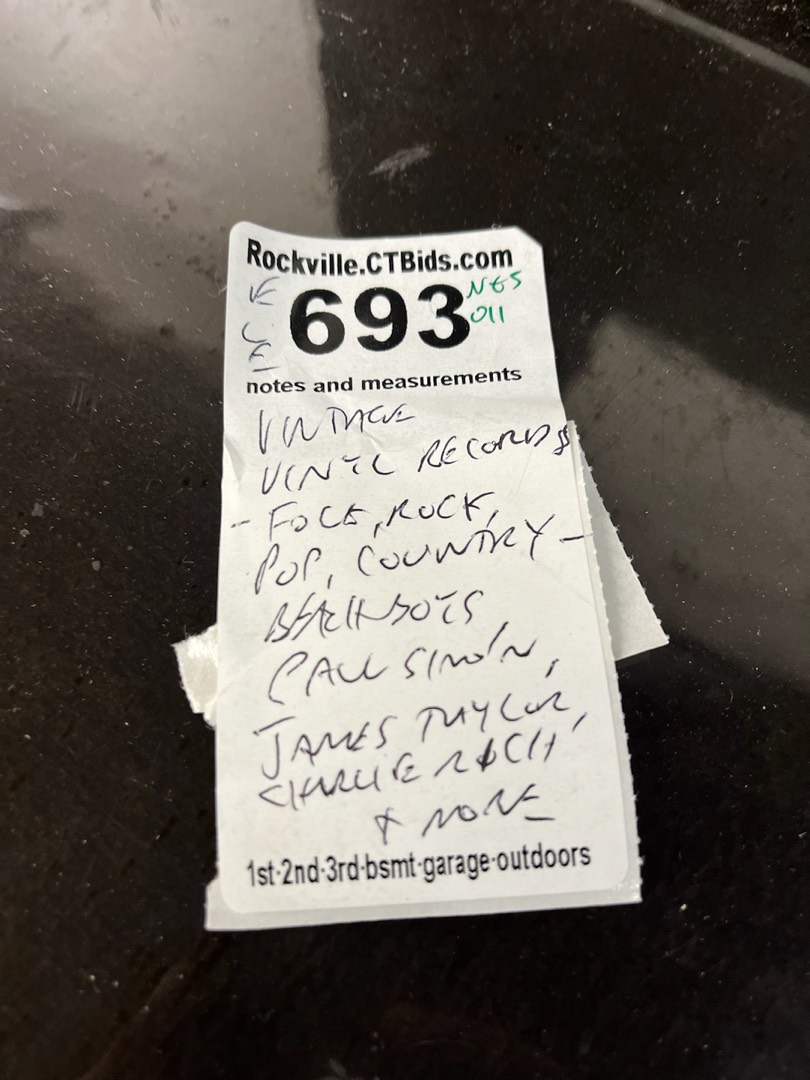 Rockville.CTBids.com
693
NGS
011
notes and measurements
VINTAGE
VINYL RECORDS
- FOLK, ROCK,
POP, COUNTRY -
BEACH BOYS,
PAUL SIMON,
JAMES TAYLOR,
CHARLIE RICH,
& MORE
1st·2nd·3rd·bsmt·garage·outdoors